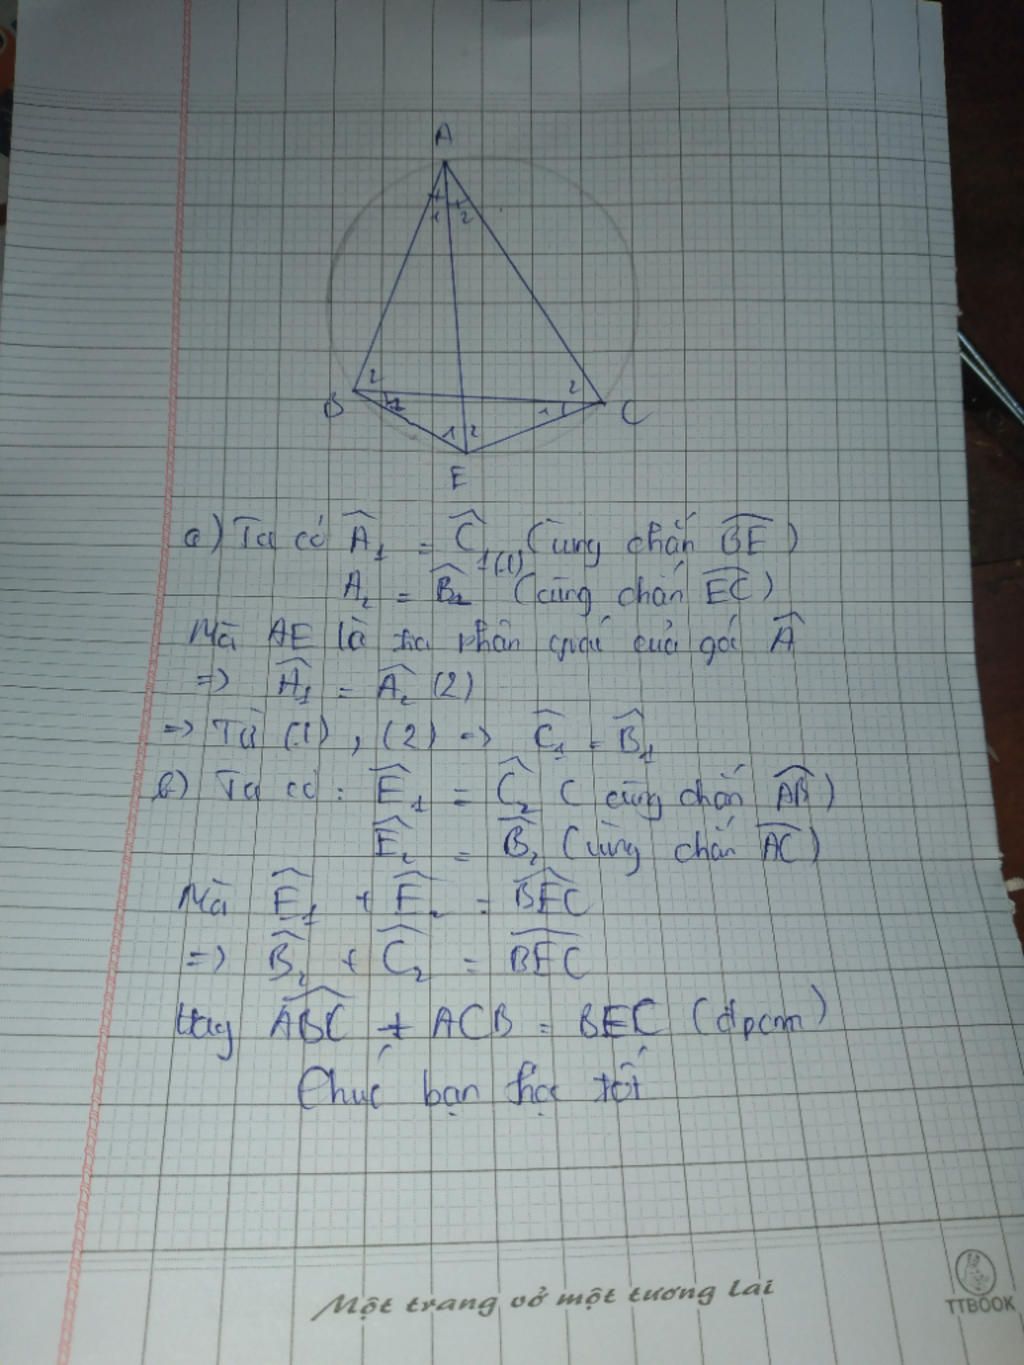 A
1 2
2 2
B 1 1 C
1 2
E
a) Ta có Â₁ = Ĉ₁ (1) (cùng chắn BE)
A₂ = B̂₁ (cùng chắn EC)
Mà AE là tia phân giác của góc Â
=> Â₁ = Â₂ (2)
=> Từ (1), (2) => Ĉ₁ = B̂₁
b) Ta có: Ê₁ = Ĉ₂ (cùng chắn AB)
Ê₂ = B̂₂ (cùng chắn AC)
Mà Ê₁ + Ê₂ = BEC
=> B̂₂ + Ĉ₂ = BEC
hay ABC + ACB = BEC (đpcm)
Chúc bạn học tốt
Một trang vở một tương lai
TTBOOK